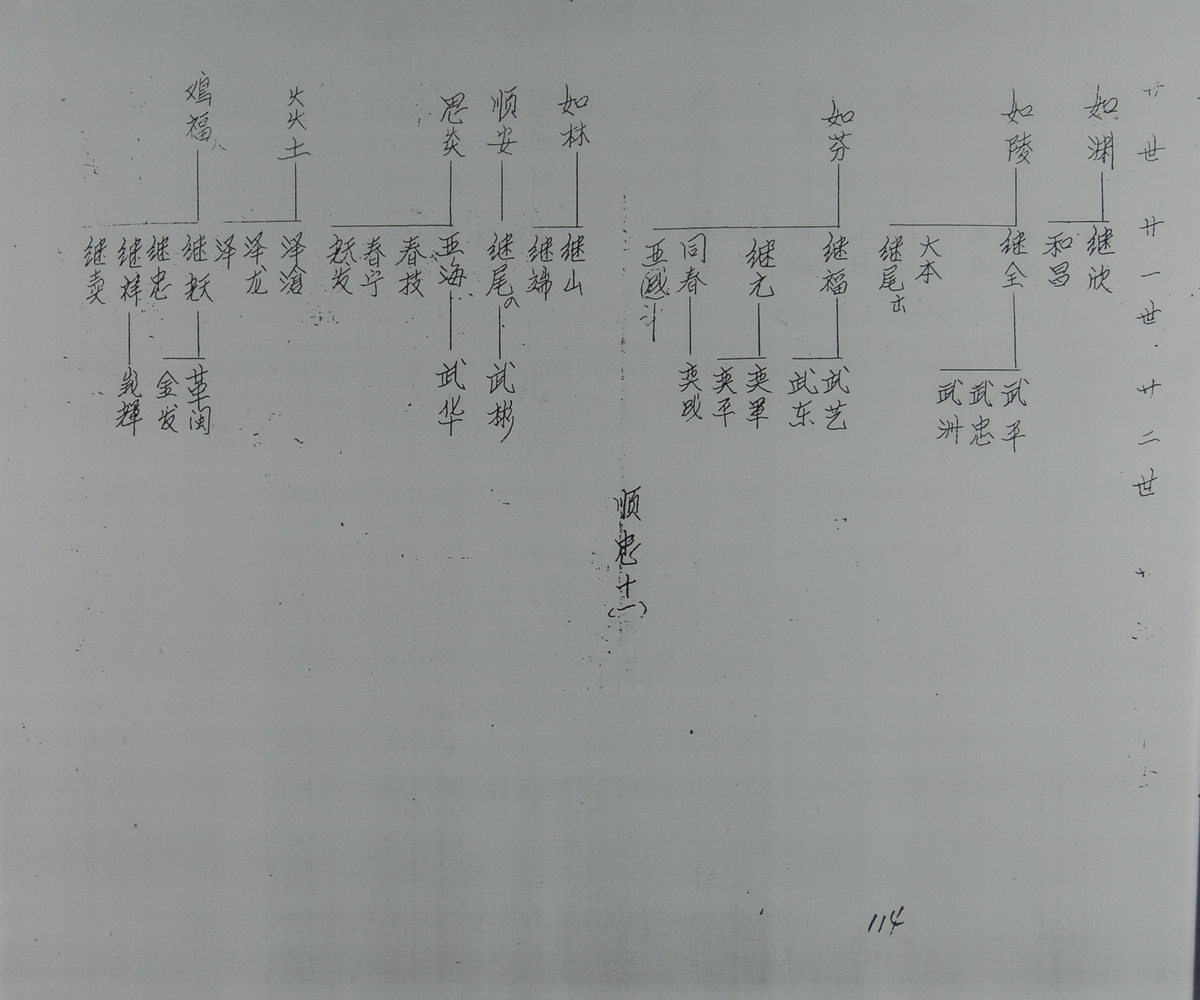 廿世
廿一世
廿二世
如渊
继欣
和昌
如陵
继全
武平
武忠
武洲
大本
继尾出
如芬
继福
武艺
武东
继元
奕军
奕平
同春
奕成
顺忠十(一)
如林
继山
继端
顺安
继尾
武彬
思炎
亚海
武华
春技
春宁
火火土
泽沧
泽龙
泽
鸡福
革闽
金发
继忠
继祥
继卖
114